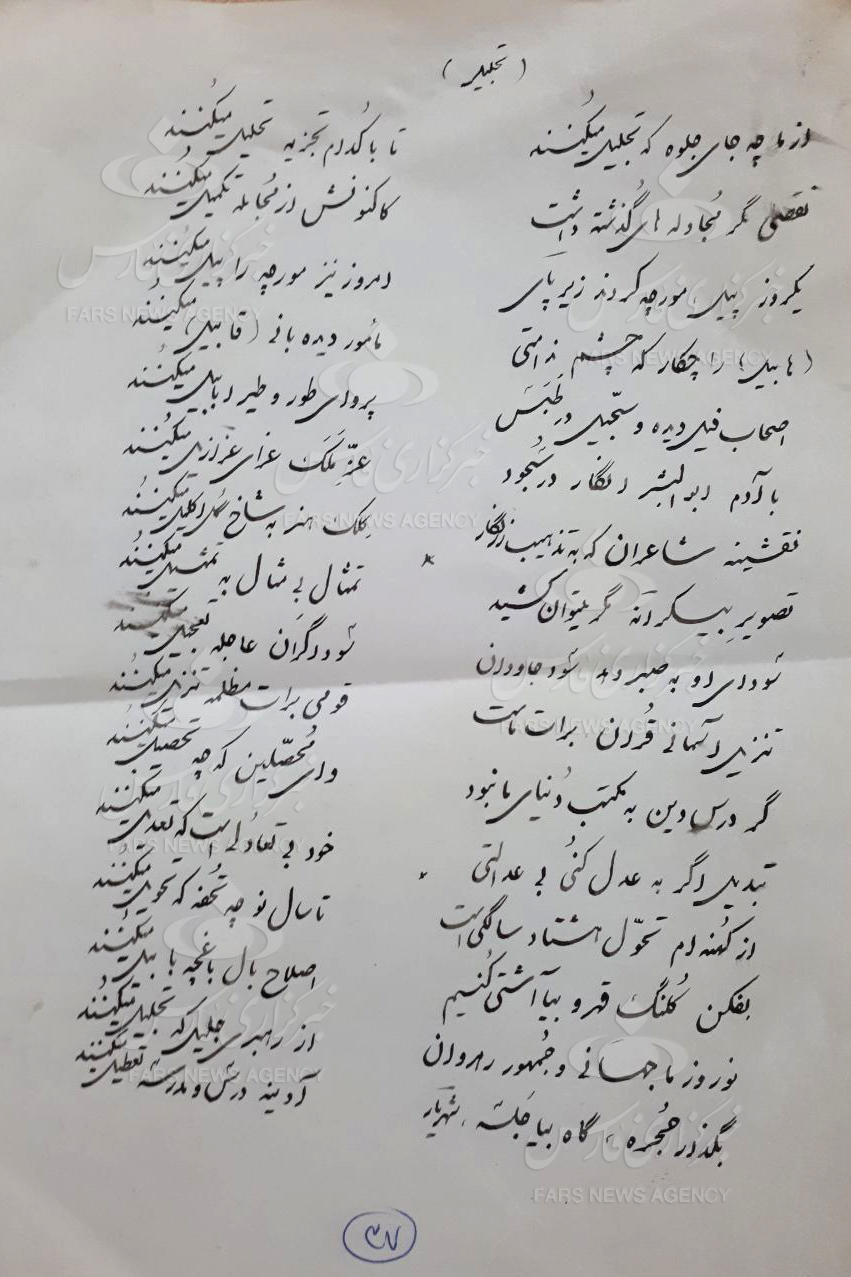 (تجلیل)
از ما چه جای جلوه که تجلیل میکنند
تا با کدام تجزیه تحلیل میکنند
نقصی مگر مجادله های گذشته داشت
کاکنونش از مجامله تکمیل میکنند
یکروز پیل، مورچه کردند زیر پای
امروز نیز مورچه را پیل میکنند
(هابیل) را چکار که چشم ندامتی
مأمور دیده بانی (قابیل) میکنند
اصحاب فیل دیده و سجیل در طبس
پروای طور و طیر ابابیل میکنند
با آدم ابوالبشر انگار در سجود
عزّ ملک عزای عزازیل میکنند
نقشینه شاعران که به تذهیب زرنگار
کلک هنر به شاخ گل اکلیل میکنند
تصویر بیکرانه گر میتوان کشید
*
تمثال بی مثال به تمثیل میکنند
سودای او به صبر دهد سود جاودان
سوداگران عاجله تعجیل میکنند
تنزیل آسمانی قرآن برات ماست
قومی برات مظلمه تنزیل میکنند
گر درس دین به مکتب دنیای ما نبود
وای محصّلین که چه تحصیل میکنند
تبدیل اگر به عدل کنی بی عدالتی
خود بی تعادلی است که تعدیل میکنند
از کهنه ام تحوّل هشتاد سالگی است
تا سال نو چه تحفه که تحویل میکنند
بفکن کلنگ قهر و بیا آشتی کنیم
اصلاح بال باغچه با بیل میکنند
نوروز ما جهانی و جمهور رهروان
از رهبری جلیل که تجلیل میکنند
بگذار حجره، گاه بیا جلسه، شهریار
آدینه درس و مدرسه تعطیل میکنند
۳۷
خبرگزاری فارس
FARS NEWS AGENCY